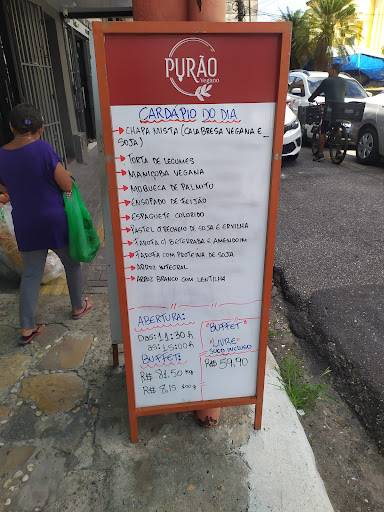 PURÃO
Vegano
CARDÁPIO DO DIA
CHAPA MISTA (CALABRESA VEGANA E
SOJA)
TORTA DE LEGUMES
MANIÇOBA VEGANA
MOQUECA DE PALMITO
ENSOPADO DE FEIJÃO
ESPAGUETE COLORIDO
PASTEL C/ RECHEIO DE SOJA E ERVILHA
FAROFA C/ BETERRABA E AMENDOIM
FAROFA COM PROTEINA DE SOJA
ARROZ INTEGRAL
ARROZ BRANCO COM LENTILHA
ABERTURA:
DAS: 11:30h
às: 15:00h
BUFFET:
R$ 81,50 KG
R$ 8,15 100G
"BUFFET
LIVRE"
SUCO INCLUSO
R$ 59,90